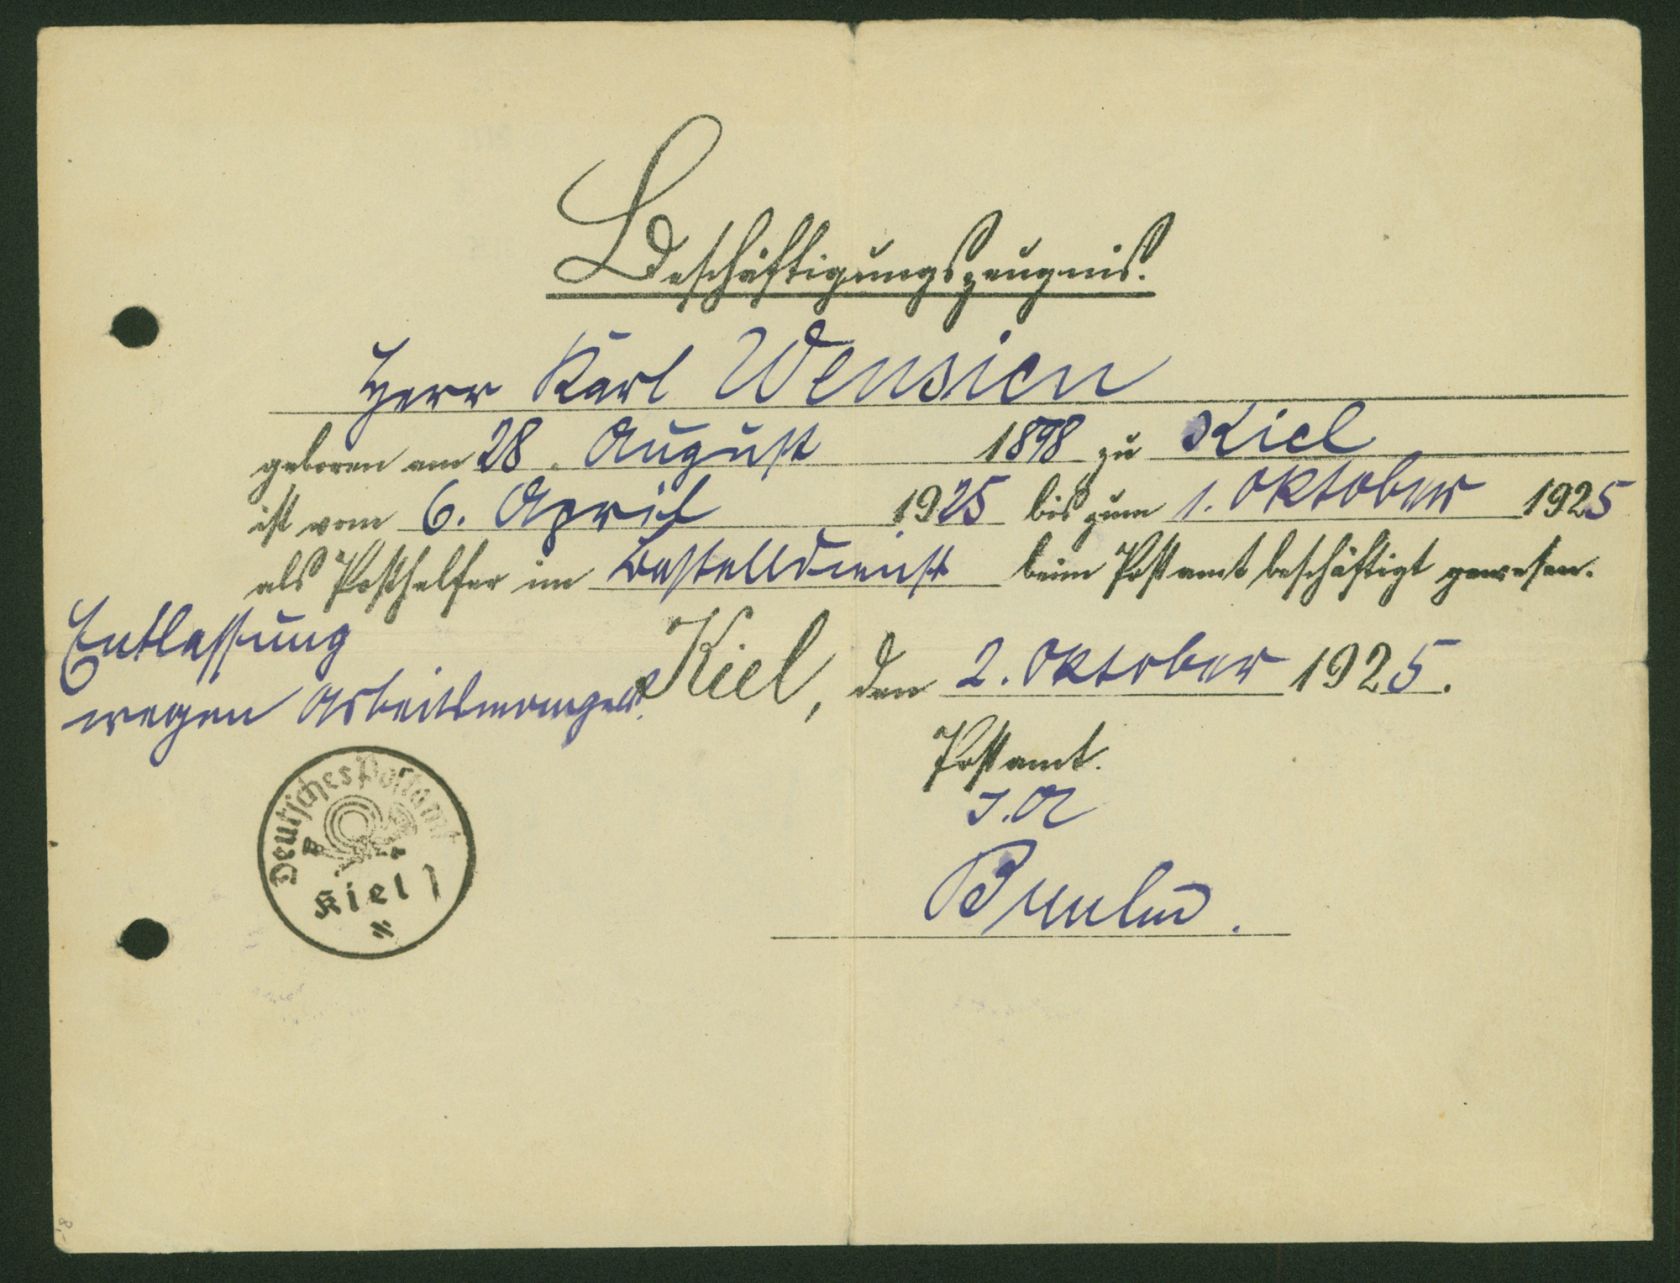 Beschäftigungszeugnis.
Herr Karl Wensien
geboren am 28. August 1898 zu Kiel
ist vom 6. April 1925 bis zum 1. Oktober 1925
als Posthelfer im Bestelldienst beim Postamt beschäftigt gewesen.
Entlassung
wegen Arbeitsmangel.
Kiel, den 2. Oktober 1925.
Postamt.
I.A
Deutsches Postamt
Kiel 1